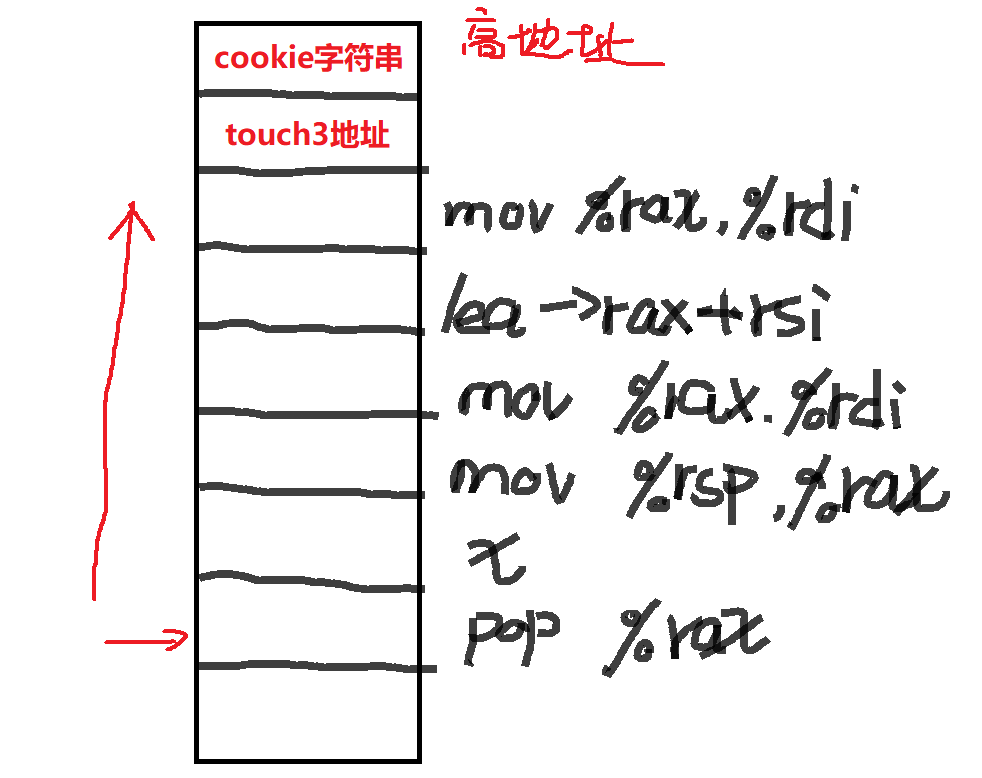 高地址
cookie字符串
touch3地址
mov %rax,%rdi
lea→rax+rsi
mov %rax.%rdi
mov %rsp,%rax
x
pop %rax